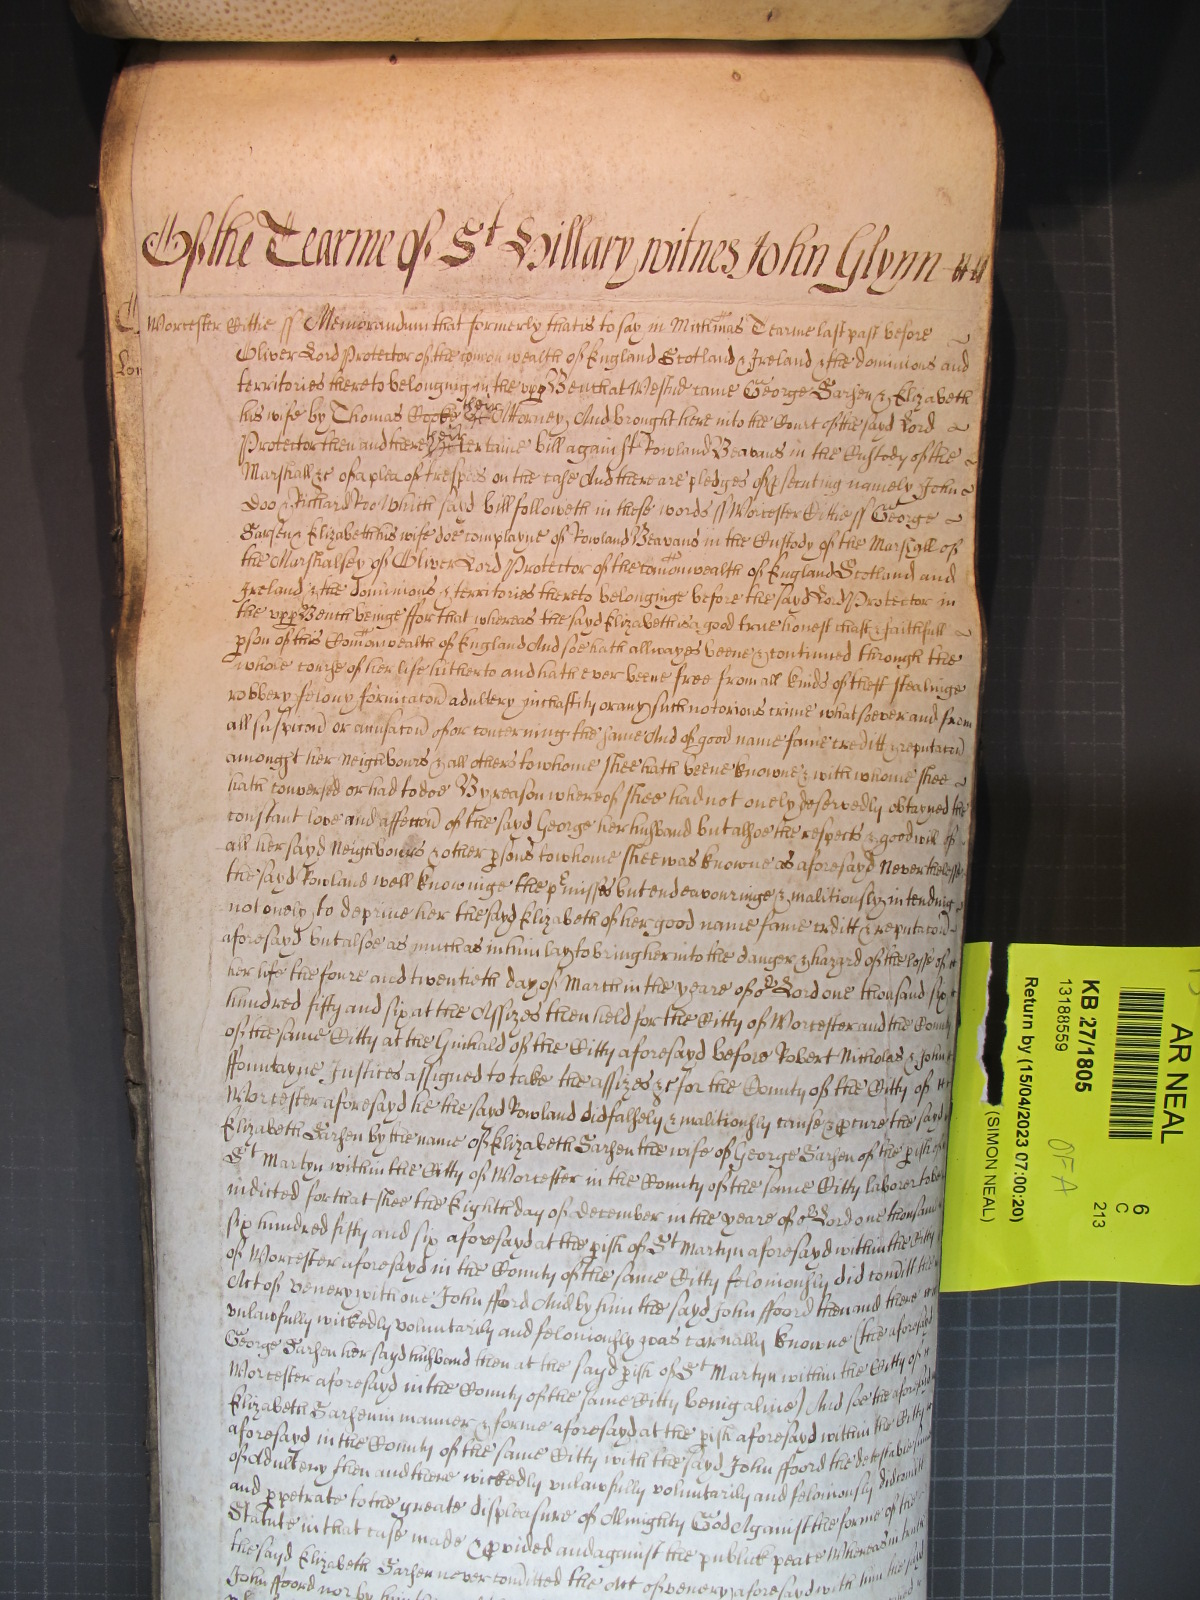 Of the Tearme of St Hillary witnes John Glynn
Worcester Cittie ss Memorandum that formerly that is to say in Mich'mas Tearme last past before
Oliver Lord Protector of the comon wealth of England Scotland & Ireland & the dominions and
territories thereto belonging in the upp Bench at Westmr came George Sarsen & Elizabeth
his wife by Thomas Rooke their Attorney And brought here into the Court of the sayd Lord
Protector then and there their certaine bill against Rowland Beavans in the Custody of the
Marshall &c of a plea of trespas on the case And there are pledges of psecuting namely John
Doo & Richard Roo Which sayd bill followeth in these words ss Worcester Cittie ss George
Sarsen & Elizabeth his wife doe complayne of Rowland Beavans in the Custody of the Marshall of
the Marshalsey of Oliver Lord Protector of the comonwealth of England Scotland and
Ireland & the dominions & territories thereto belonginge before the sayd Lord Protector in
the upp Bench beinge ffor that whereas the sayd Elizabeth is a good true honest chast & faithfull
pson of this Comonwealth of England And soe hath allwayes beene & continued through the
whole course of her life hitherto and hath ever beene free from all kinds of theft stealinge
robbery felony fornicacon adultery inchastity or any such notorious crime whatsoever and from
all suspicon or accusacon of or concerning the same And of good name fame creditt & reputacon
amonght her Neighbours & all others to whome shee hath beene knowne & with whome shee
hath conversed or had to doe By reason whereof shee had not onely deservedly obtayned the
constant love and affeccon of the sayd George her husband but alsoe the respects & good will of
all her sayd Neighbours & other psons to whome shee was knowne as aforesayd Nevertheless
the sayd Rowland well knowinge the pmisses but endeavouringe & malitiously intending
not onely to deprive her the sayd Elizabeth of her good name fame creditt & reputacon
aforesayd but alsoe as much as in him lay to bring her into the danger & hazard of the losse of
her life the foure and twentieth day of March in the yeare of or Lord one thousand six
hundred fifty and six at the Assizes then held for the Citty of Worcester and the County
of the same Citty at the Guihald of the Citty aforesayd before Robert Nicholas & John
ffountayne Justices assigned to take the assizes &c for the County of the Citty of
Worcester aforesayd he the sayd Rowland did falsely & malitiously cause & pcure the sayd
Elizabeth Sarsen by the name of Elizabeth Sarsen the wife of George Sarsen of the pish of
St Martyn within the Citty of Worcester in the County of the same Citty laborer to be
indicted for that shee the Eighth day of December in the yeare of or Lord one thousand
six hundred fifty and six aforesayd at the pish of St Martyn aforesayd within the Citty
of Worcester aforesayd in the County of the same Citty feloniously did comitt the
Act of venery with one John fford And by him the sayd John ffoord then and there
unlawfully wickedly voluntarily and feloniously was carnally knowne (the aforesayd
George Sarsen her sayd husband then at the sayd pish of St Martyn within the Citty of
Worcester aforesayd in the County of the same Citty being alive) And soe the aforesayd
Elizabeth Sarsen in manner & forme aforesayd at the pish aforesayd within the Citty
aforesayd in the County of the same Citty with the sayd John ffoord the detestable
of Adultery then and there wickedly unlawfully voluntarily and feloniously did comitt
and ppetrate to the greate displeasure of Almighty God Against the forme of the
Statute in that case made & pvided and against the publick peace Whereas in truth
the sayd Elizabeth Sarsen never comitted the Act of venery aforesayd with him the sayd
John ffoord nor by him
AR NEAL
KB 27/1805
13188559
Return by (15/04/2023 07:00:20)
(SIMON NEAL)
6
C
213
OFA